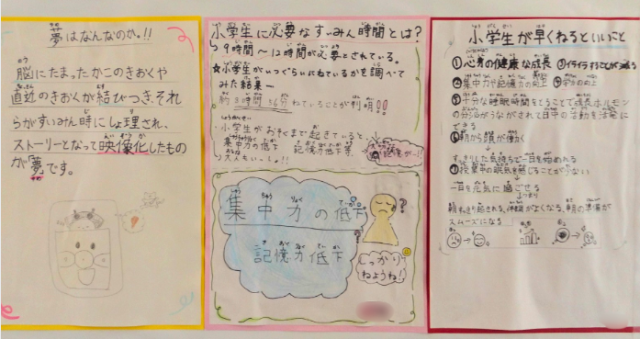 夢はなんなのか。!!
脳にたまったかこのきおくや
直近のきおくが結びつき、それ
らがすいみん時にしょ理され、
ストーリーとなって映像化したもの
が夢です。
小学生に必要なすいみん時間とは?
9時間〜12時間が必要とされている。
☆小学生がいつぐらいねているかを調べて
みた結果ー
約8時間36分ねていることが判明!!
小学生がおそくまで起きていると、
集中力の低下 記憶力低下等
大人もいっしょ!!
集中力の低下
記憶力低下
しっかり
ねようね!
小学生が早くねるといいこと
①心身の健康な成長
②集中力や記憶力の向上
③十分な睡眠時間をとることで成長ホルモン
の分泌がうながされて日中の活動を活発に
できる
④朝から頭が働く
すっきりした気持ちで一日を始められる
授業中の眠気を感じることが少ない
一日を元気に過ごせる
スムーズになる